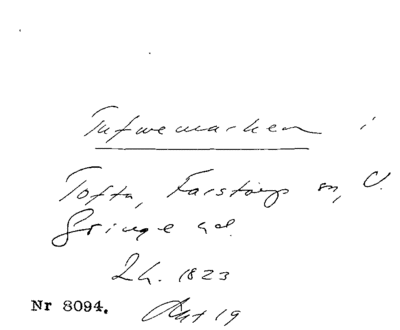 Tufvemarken i
Tofta, Farstorps sn, V.
Göinge hd.
Lh. 1823
Nr 8094. Akt 19